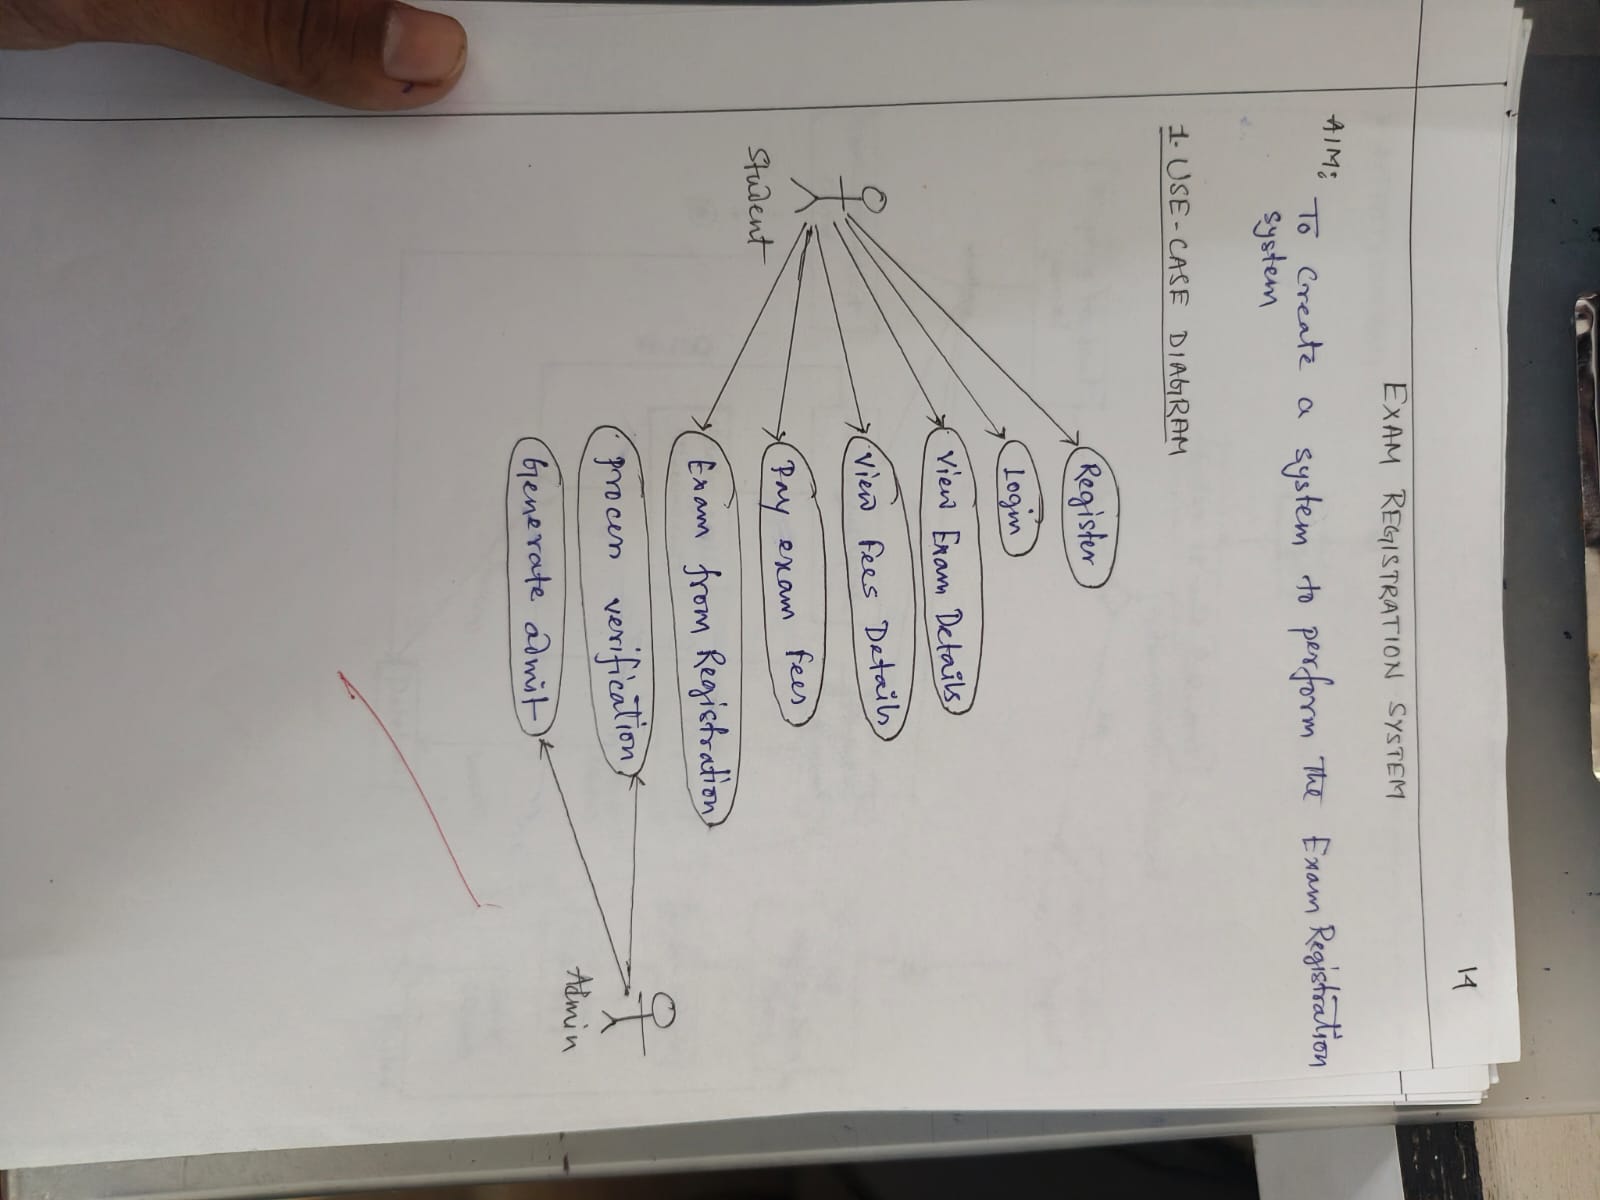 14
EXAM REGISTRATION SYSTEM
AIM: To create a system to perform The Exam Registration
system
1. USE-CASE DIAGRAM
Register
Login
View Exam Details
View Fees Details
Student
Pay exam Fees
Exam from Registration
Proces verification
Generate admit
Admin